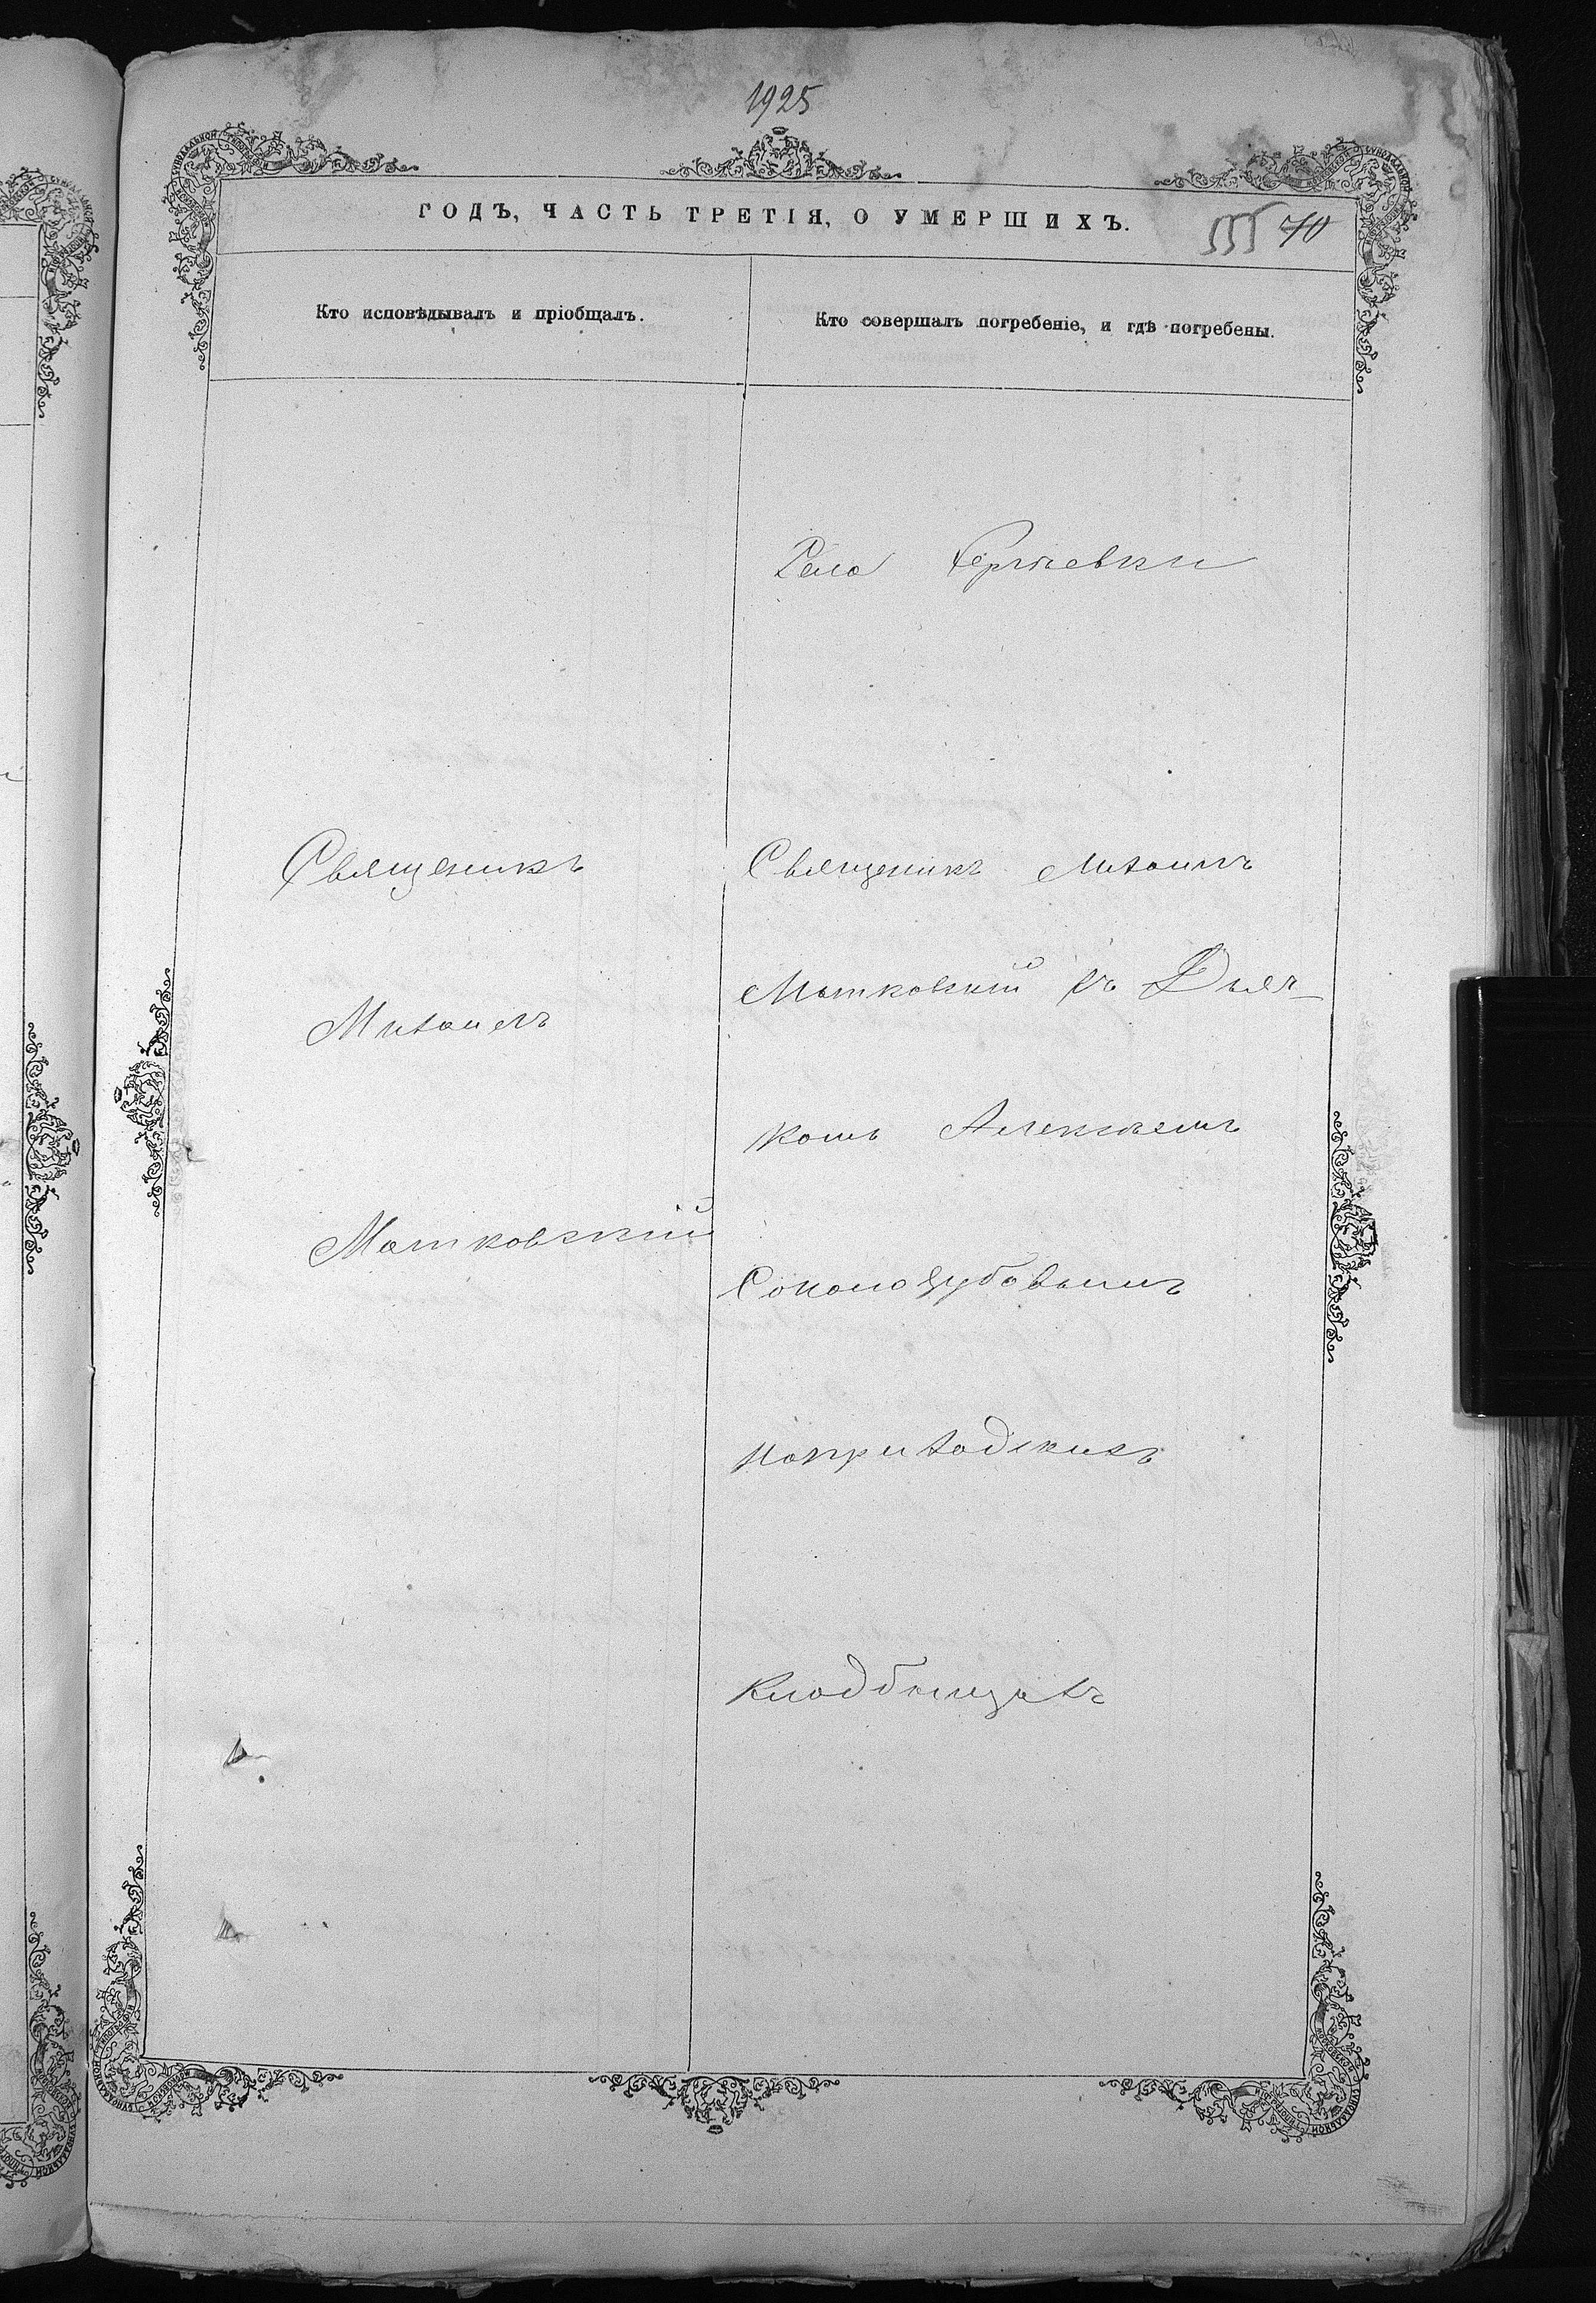 1925
ГОДЪ, ЧАСТЬ ТРЕТІЯ, О УМЕРШИХЪ.
555 70
Кто исповѣдывалъ и пріобщалъ.
Кто совершалъ погребеніе, и гдѣ погребены.
Села Сергіевки
Священикъ
Михаилъ
Матковскій
Священикъ Михаилъ
Матковскій съ Дьяч-
комъ Алексѣемъ
Соколозубовымъ
наприходскихъ
Кладбищахъ